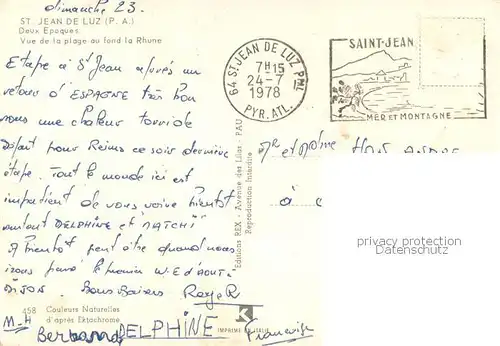 dimanche 23.
ST. JEAN DE LUZ (P. A.)
Deux Epoques
Vue de la plage au fond la Rhune
Etape à St Jean après un
retour d'ESPAGNE très bon
sous une chaleur torride
départ pour Reims ce soir dernière
étape. Tout le monde ici est
impatient de vous voir bientôt
surtout DELPHINE et "MATCHI"
A bientôt peut être quand nous
irons le W.E d'AOUT
DIJON. Bons Baisers Roger
458 Couleurs Naturelles
d'après Ektachrome
M-H
Bertrand DELPHINE Françoise
Editions REX - Avenue des Lilas - PAU
Reproduction Interdite
IMPRIMÉ EN ITALIE
64 ST JEAN DE LUZ PPAL
7H15
24-7
1978
PYR. ATL.
SAINT-JEAN
MER et MONTAGNE
Mr et Mme
à
privacy protection
Datenschutz